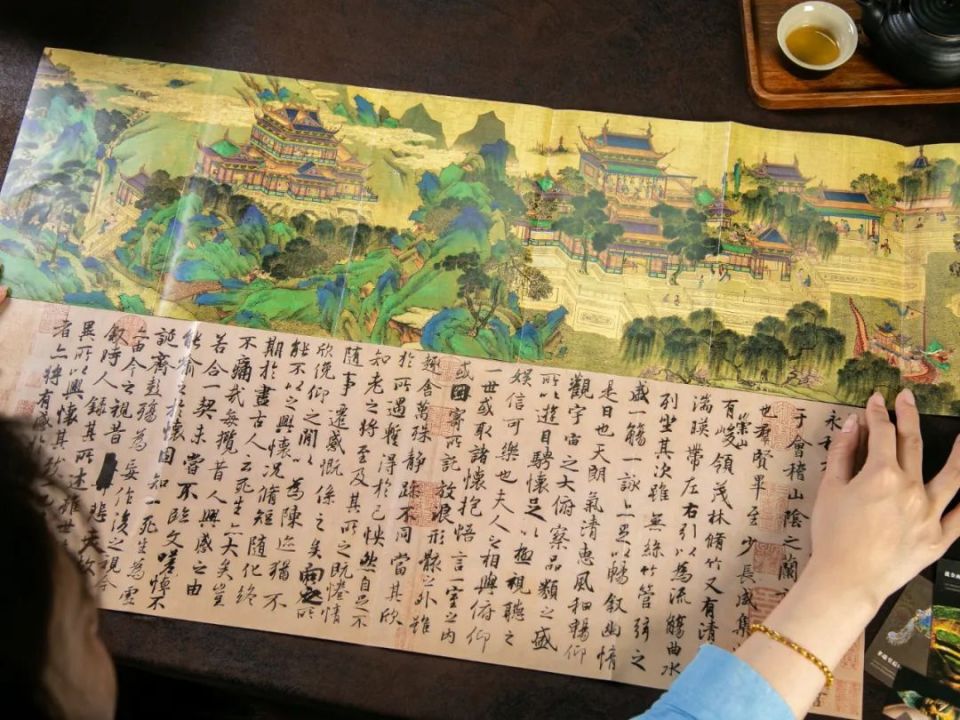 永和
于會稽山陰之蘭
也羣賢畢至少長咸集
有崇山峻領茂林脩竹又有清
湍暎帶左右引以為流觴曲水
列坐其次雖無絲竹管弦之
盛一觴一詠亦足以暢叙幽情
是日也天朗氣清惠風和暢仰
觀宇宙之大俯察品類之盛
所以遊目騁懷足以極視聽之
娛信可樂也夫人之相與俯仰
一世或取諸懷抱悟言一室之內
或因寄所託放浪形骸之外雖
趣舍萬殊静躁不同當其欣
於所遇暫得於己怏然自足不
知老之將至及其所之既惓情
隨事遷感慨係之矣向之所
欣俛仰之閒以為陳迹猶不
能不以之興懷況脩短隨化終
期於盡古人云死生亦大矣豈
不痛哉每攬昔人興感之由
若合一契未嘗不臨文嗟悼不
能喻之於懷固知一死生為虛
誕齊彭殤為妄作後之視今
亦由今之視昔悲夫故
叙時人錄其所述雖世
異所以興懷其致一
者亦將有感